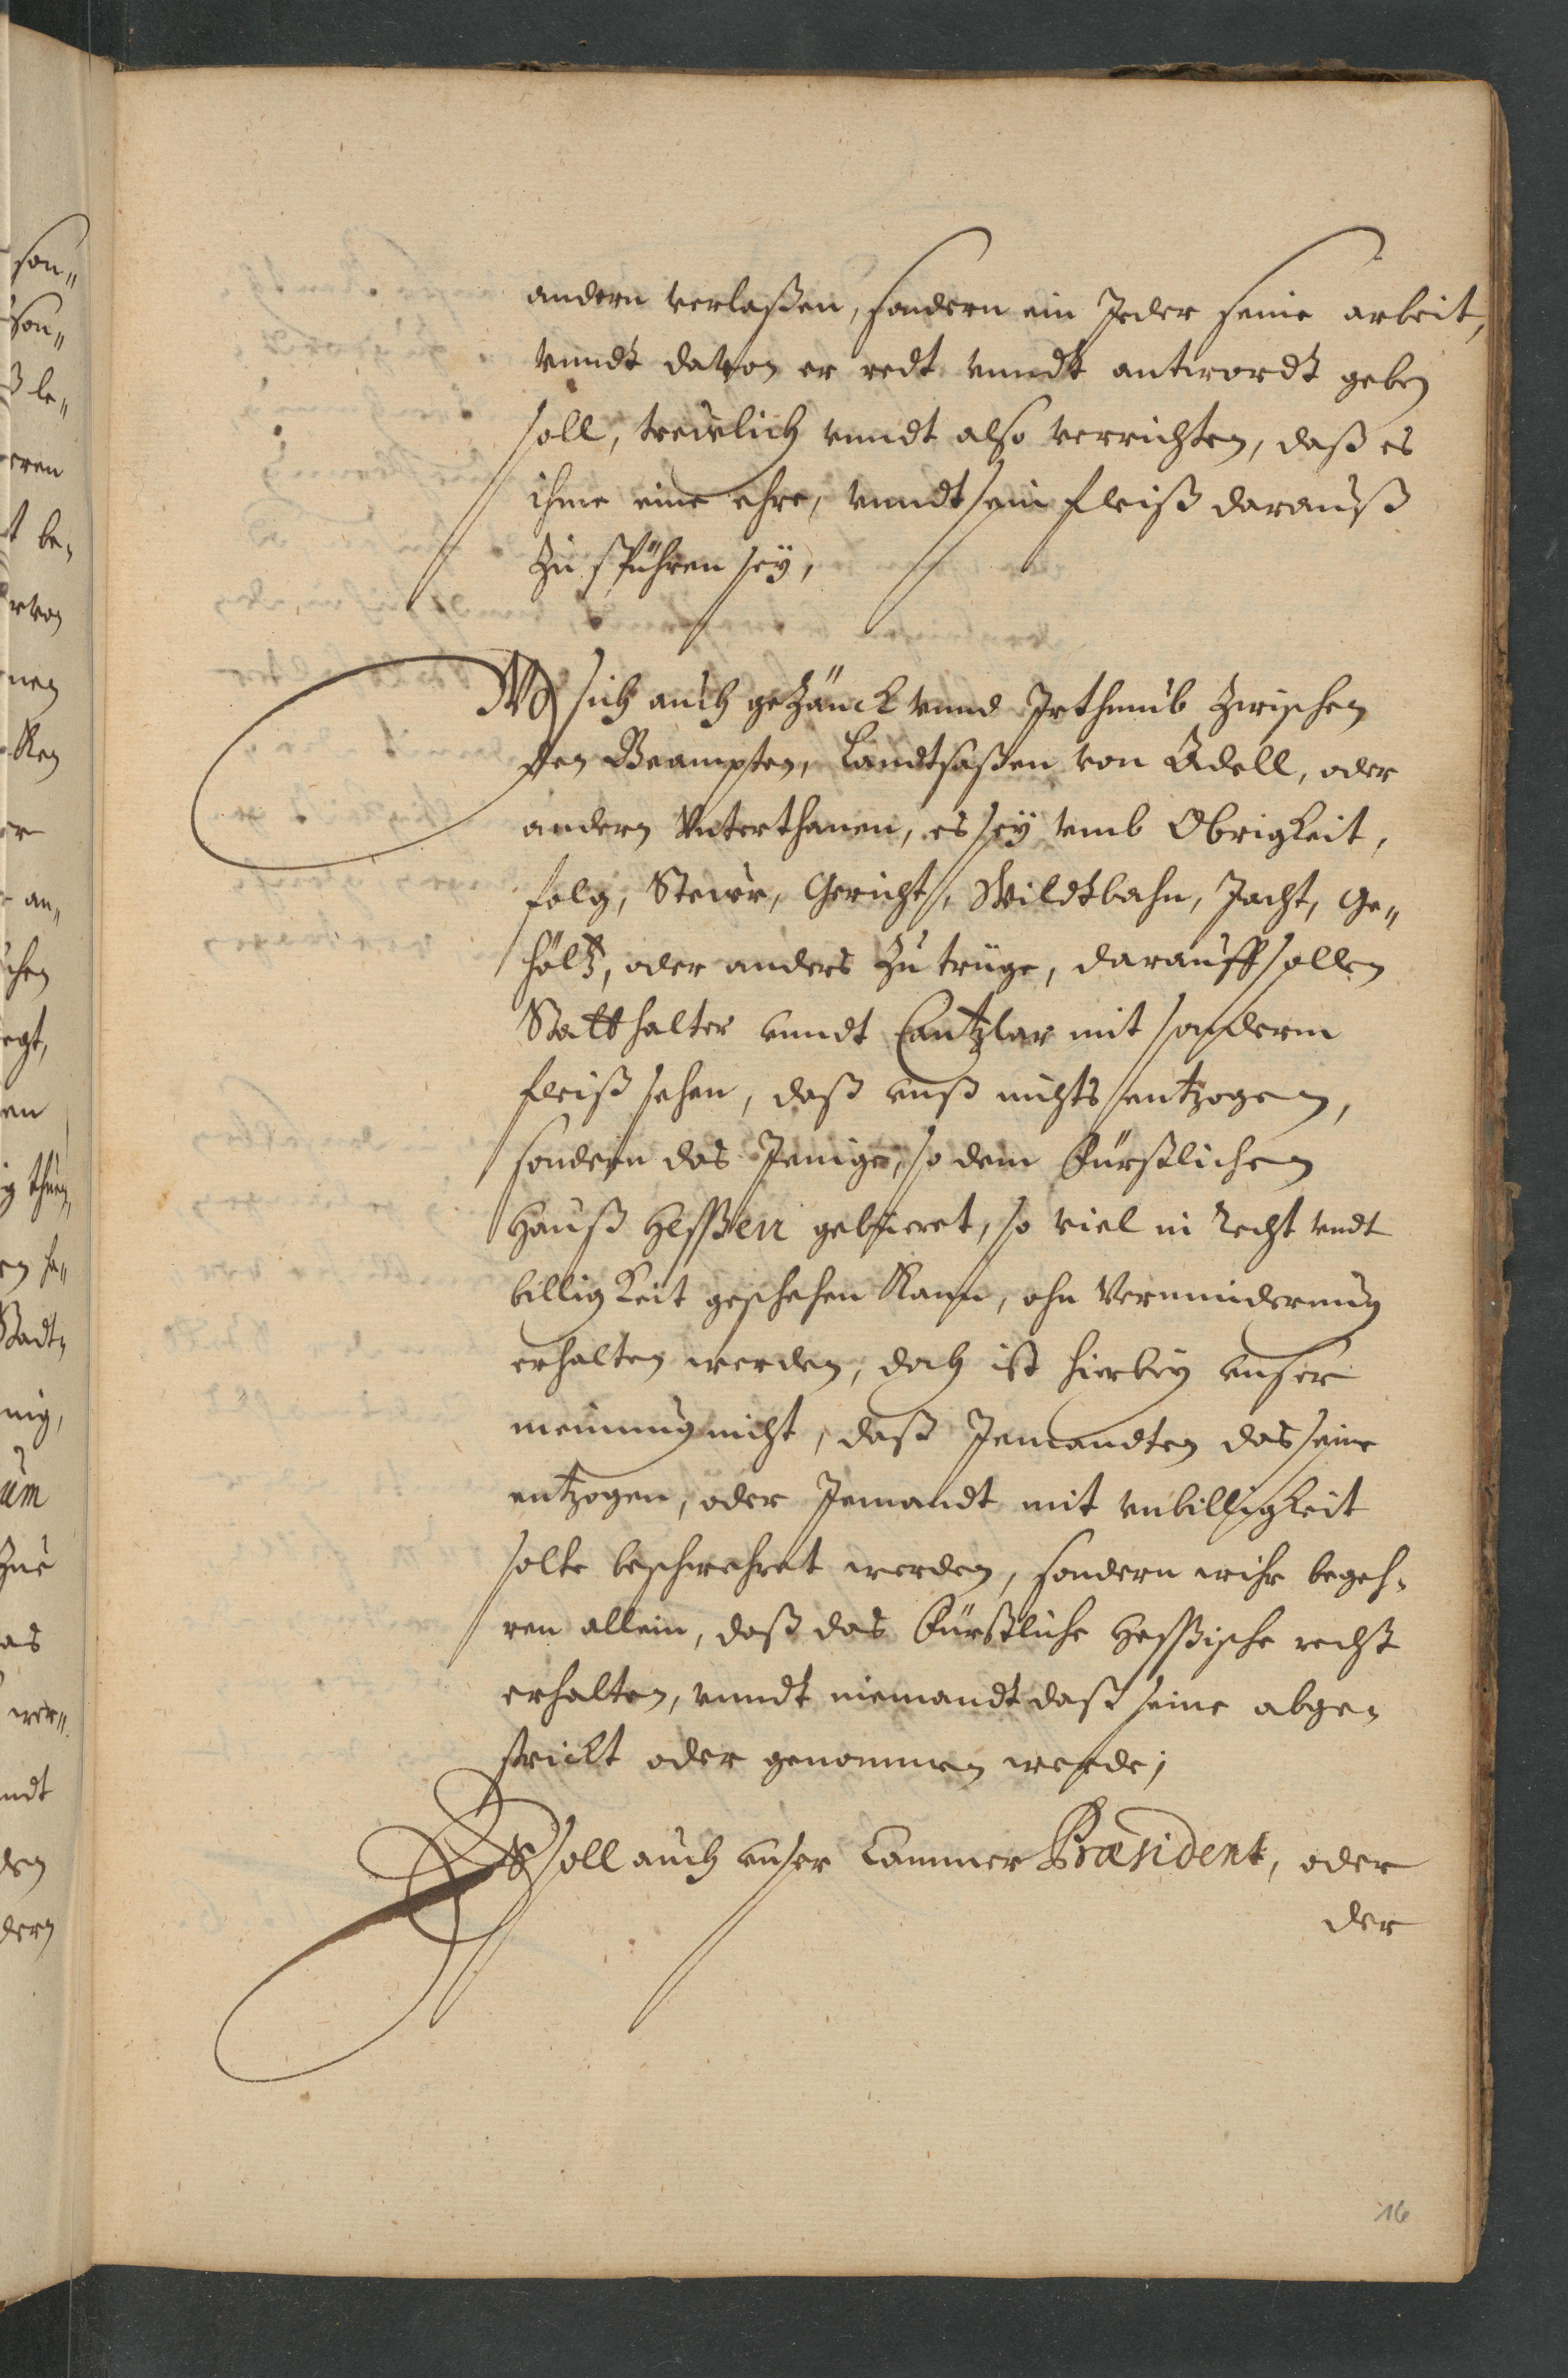 andern verlaßen, sondern ein Jeder seine arbeit,
vnndt davon er redt vnndt antwordt geben
soll, treẅlich vnndt also verrichten, daß es
ihme eine ehre, vnndt sein fleiß darauß
zu spühren seÿ,
Wo sich auch gezänck vnnd Irthumb zwischen
den Beampten, Landtsaßen von Adell, oder
andern Vnterthanen, es seÿ vmb Obrigkeit,
folg, Stewr, Gericht, Wildtbahn, Jacht, Ge„
höltz, oder anders zu trüge, darauff sollen
Statthalter vnndt Cantzlar mit sonderm
fleiß sehen, daß vnß nichts entzogen,
sondern das Jenige, so dem Fürstlichen
Hauß Heßßen gebüeret, so viel in Recht vndt
billigkeit geschehen kann, ohn Verminderung
erhalten werden, doch ist hierbeÿ vnser
meinung nicht, daß Jemandten das seine
entzogen, oder Jemandt mit vnbilligkeit
solte beschwehret werden, sondern wihr begeh-
ren allein, daß das Fürstliche Heßßische recht
erhalten, vnndt niemandt daß seine abge-
strickt oder genommen werde;
Es soll auch vnser Cammer Præsident, oder
der
16